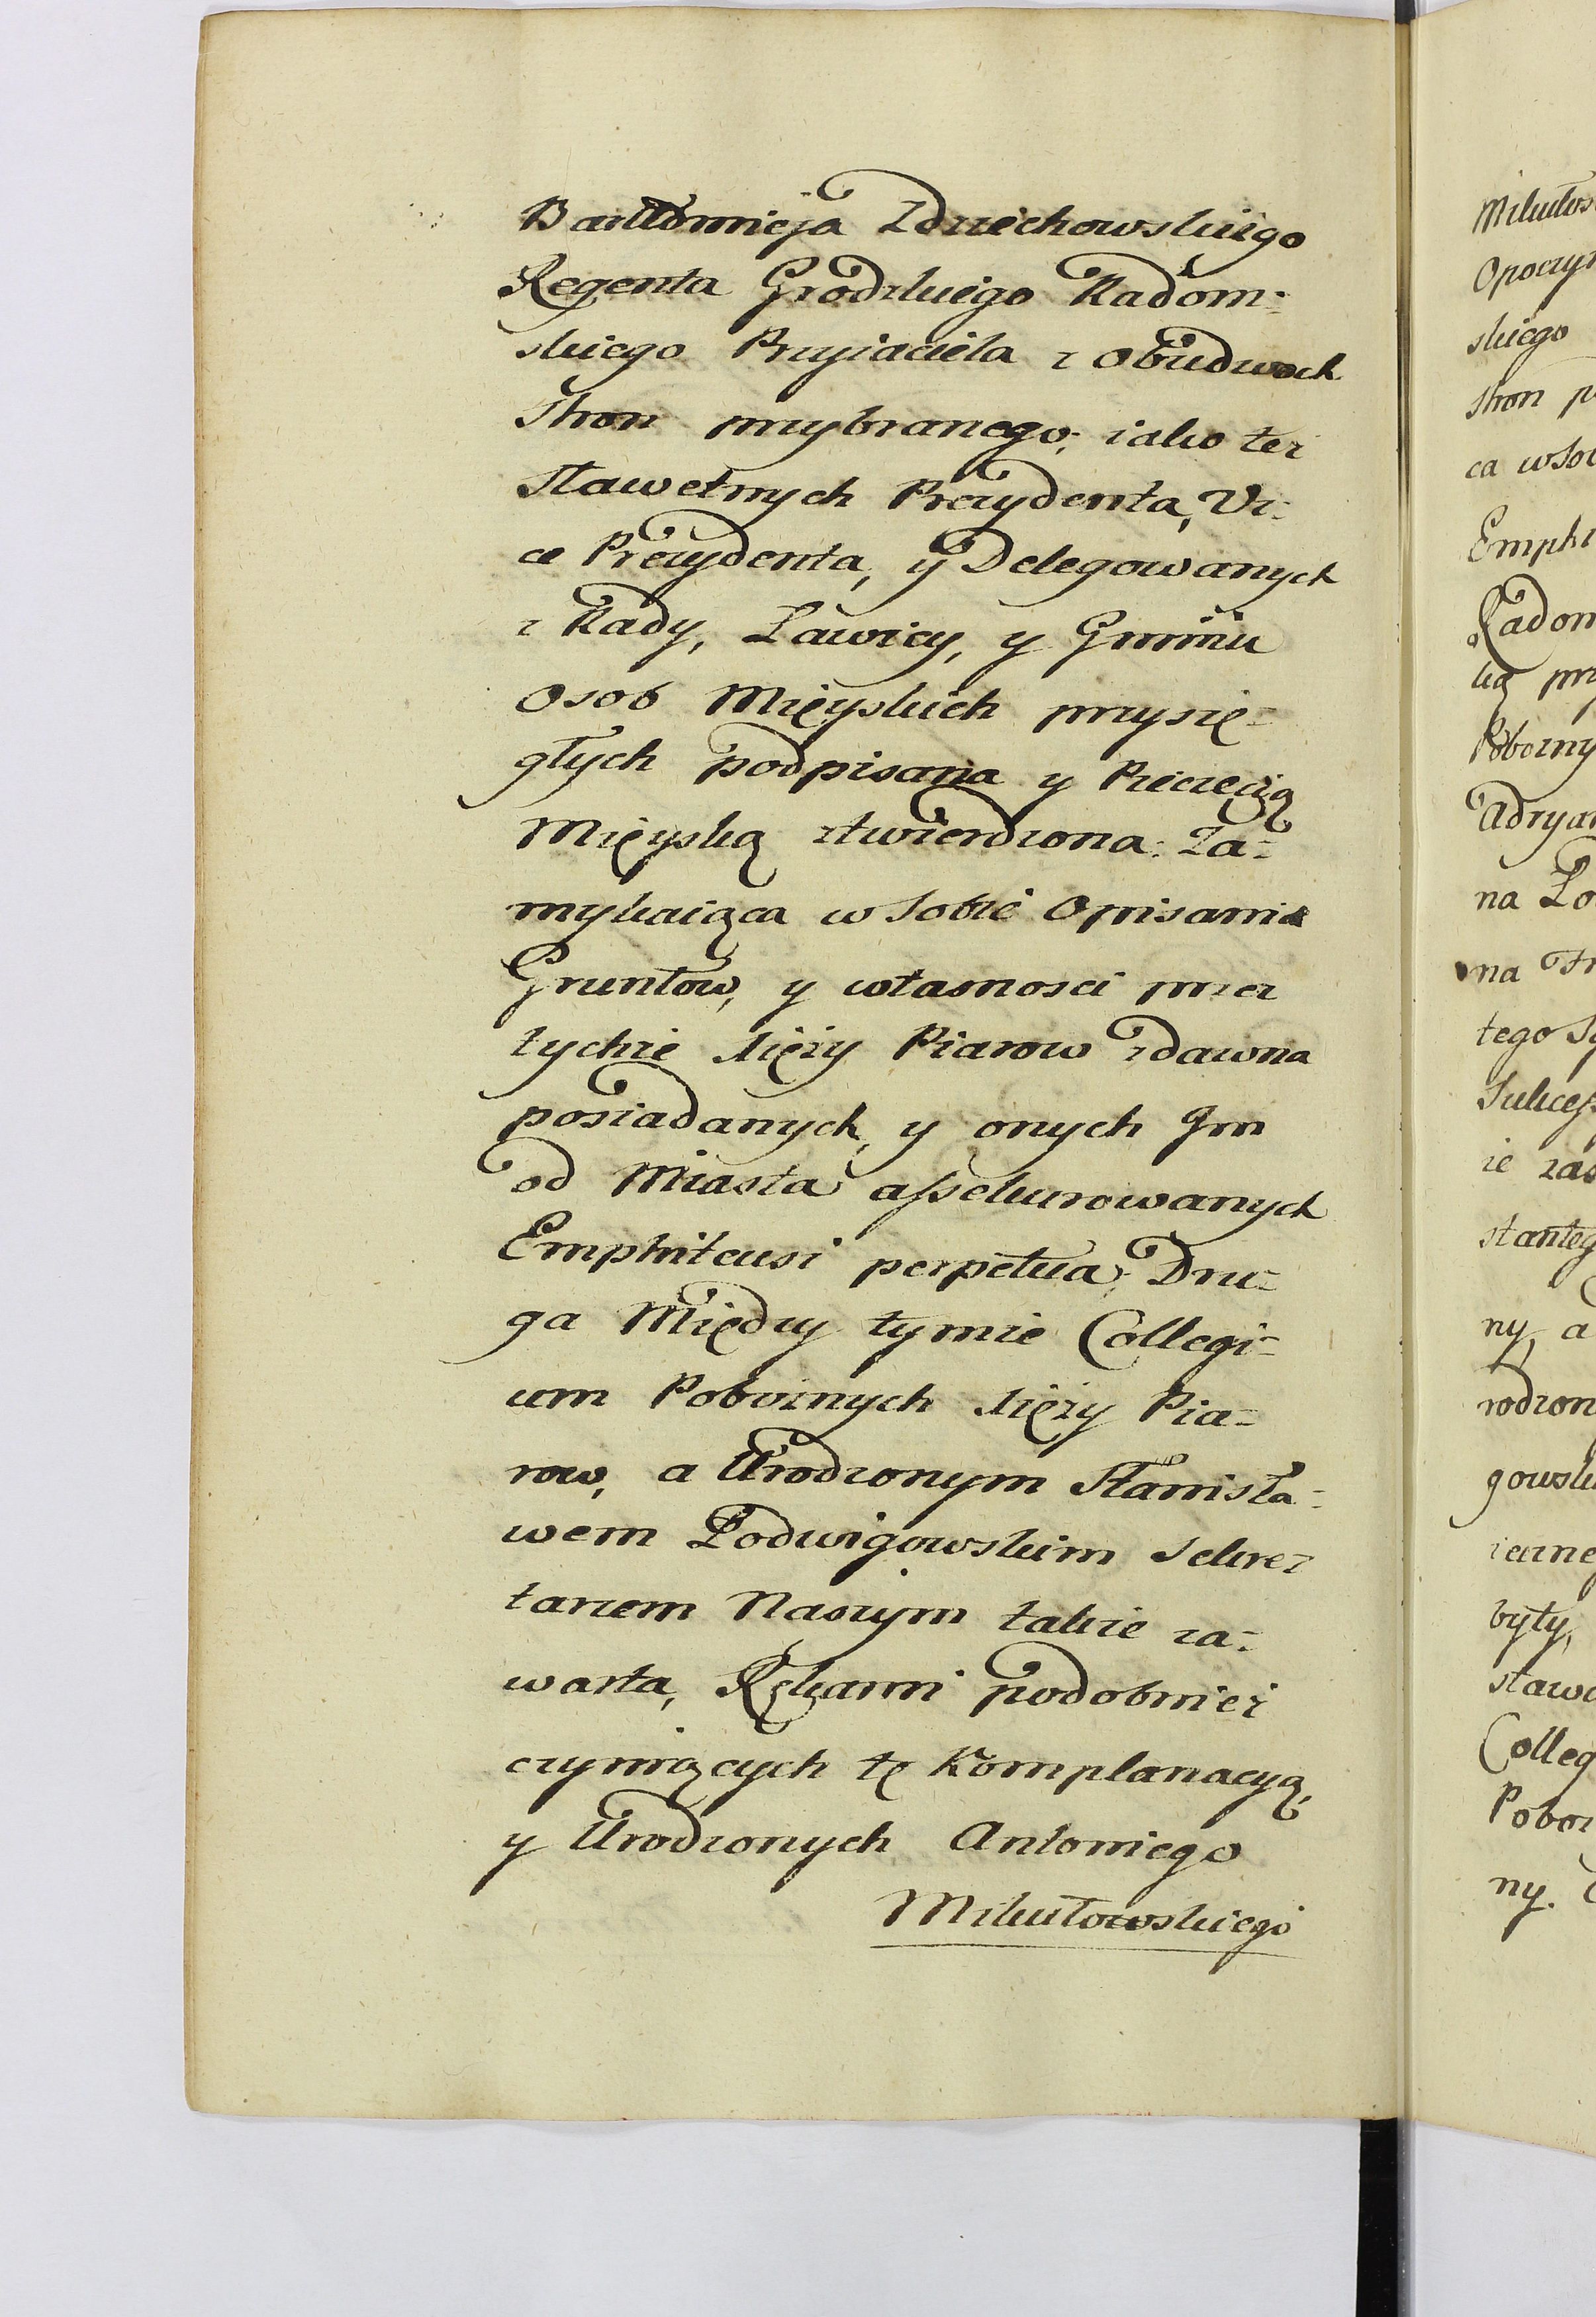 Bartłomieja Zdziechowskiego
Regenta Grodzkiego Radom=
skiego Przyiaciela z Obudwoch
Stron przybranego; iako też
Sławetnych Prezydenta, Vi=
ce Prezydenta, y Delegowanych
z Rady, Ławicy, y Gminu
Osob Mięyskich przysię=
głych podpisana y Pieczęcią
Mięyską ztwierdzona: Za=
mykaiąca w Sobie Opisania
Gruntow, y własnosci przez
tychże Xięży Piarow zdawna
posiadanych, y onych Jm
od Miasta assekurowanych
Emphiteusi perpetua; Dru=
ga Między tymże Collegi=
um Pobożnych Xięży Pia=
row, a Urodzonym Stanisła=
wem Podwigowskim Sekre=
tarzem Naszym także za=
warta, Rękami podobnież
czyniących tę Komplanacyą,
y Urodzonych Antoniego
Mikułowskiego
Mikułows
Opoczyn
skiego
Stron p
ca w So
Emphi
Radom
ką prz
Pobożny
Adryan
na
na
tego
Sukces
że zas
stanteg
ny, a
rodzon
gowsk
były,
stawa
Colleg
Poboż
ny.